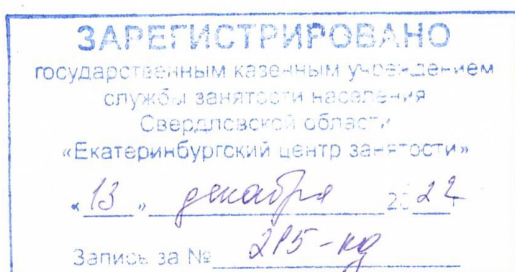 ЗАРЕГИСТРИРОВАНО
государственным казенным учреждением
службы занятости населения
Свердловской области
«Екатеринбургский центр занятости»
«13» декабря 2022
Запись за № 215-кд